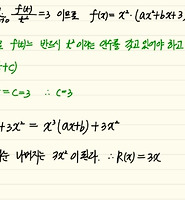 f(x)/x² = 3 이므로 f(x)=x²·(ax²+bx+3
f(x)는 반드시 x²이라는 인수를 갖고 있어야 하고
+c)
= C=3 ∴ C=3
+3x² = x³(ax+b)+3x²
나머지는 3x² 이 된다. ∴ R(x)=3x